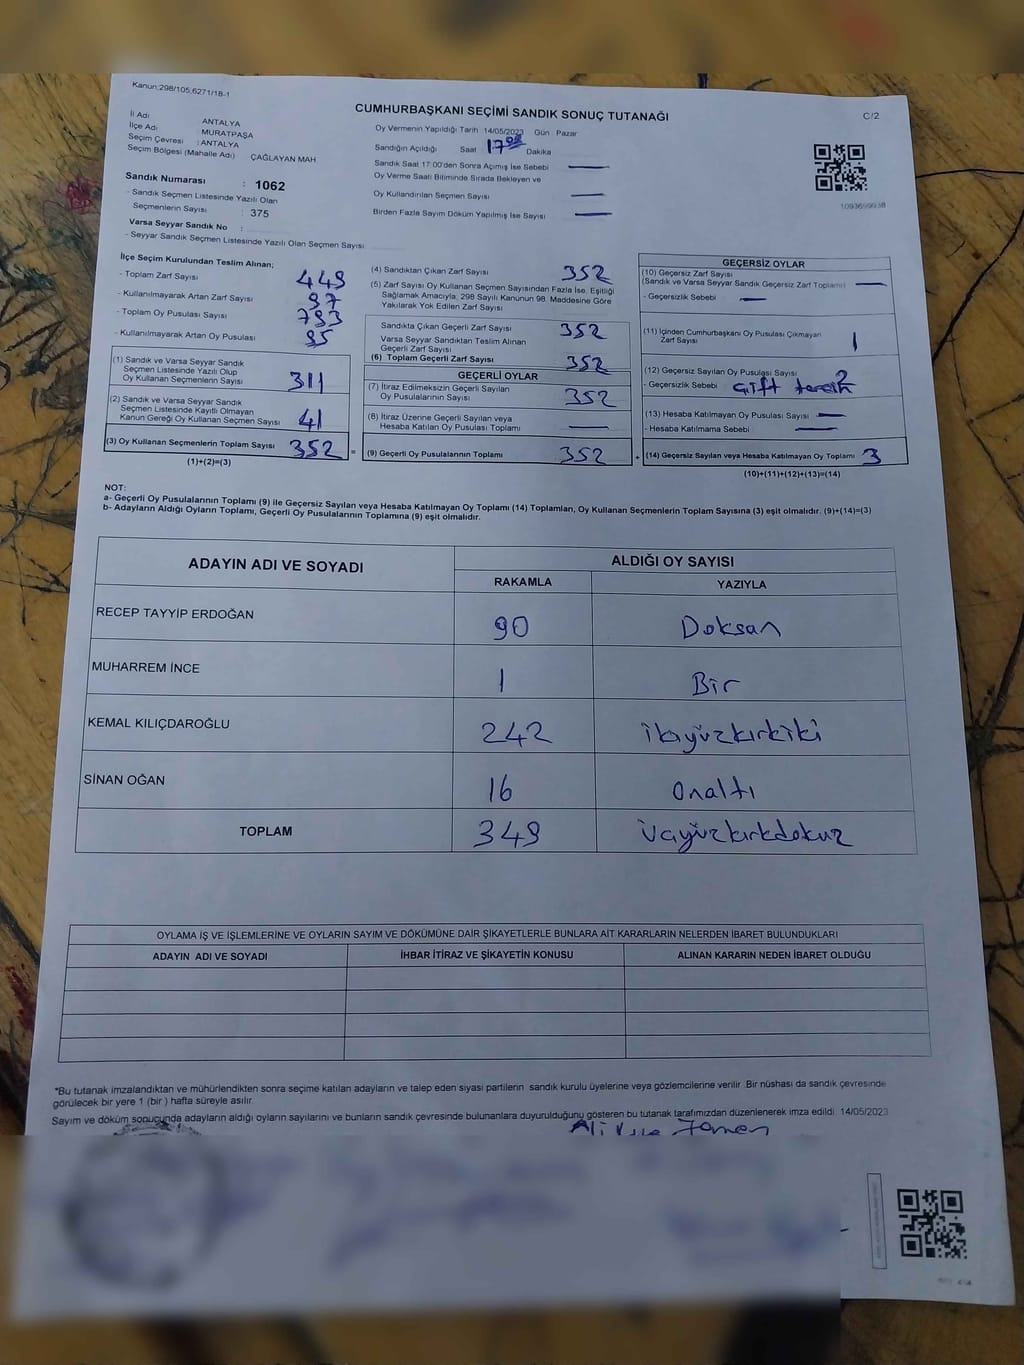 Kanun:298/105,6271/18-1
CUMHURBAŞKANI SEÇİMİ SANDIK SONUÇ TUTANAĞI
C/2
İl Adı ANTALYA
İlçe Adı MURATPAŞA
Seçim Çevresi : ANTALYA
Seçim Bölgesi (Mahalle Adı) ÇAĞLAYAN MAH
Sandık Numarası : 1062
- Sandık Seçmen Listesinde Yazılı Olan
Seçmenlerin Sayısı : 375
Varsa Seyyar Sandık No :
- Seyyar Sandık Seçmen Listesinde Yazılı Olan Seçmen Sayısı
Oy Vermenin Yapıldığı Tarih 14/05/2023 Gün Pazar
Sandığın Açıldığı Saat 17 Dakika
Sandık Saat 17:00'den Sonra Açımış İse Sebebi
Oy Verme Saati Bitiminde Sırada Bekleyen ve
Oy Kullandırılan Seçmen Sayısı
Birden Fazla Sayım Döküm Yapılmış İse Sayısı
1093699938
İlçe Seçim Kurulundan Teslim Alınan;
- Toplam Zarf Sayısı 449
- Kullanılmayarak Artan Zarf Sayısı 97
- Toplam Oy Pusulası Sayısı
- Kullanılmayarak Artan Oy Pusulası
(1) Sandık ve Varsa Seyyar Sandık
Seçmen Listesinde Yazılı Olup
Oy Kullanan Seçmenlerin Sayısı 311
(2) Sandık ve Varsa Seyyar Sandık
Seçmen Listesinde Kayıtlı Olmayan
Kanun Gereği Oy Kullanan Seçmen Sayısı 41
(3) Oy Kullanan Seçmenlerin Toplam Sayısı 352 =
(1)+(2)=(3)
(4) Sandıktan Çıkan Zarf Sayısı 352
(5) Zarf Sayısı Oy Kullanan Seçmen Sayısından Fazla İse, Eşitliği
Sağlamak Amacıyla, 298 Sayılı Kanunun 98. Maddesine Göre
Yakılarak Yok Edilen Zarf Sayısı
Sandıkta Çıkan Geçerli Zarf Sayısı 352
Varsa Seyyar Sandıktan Teslim Alınan
Geçerli Zarf Sayısı
(6) Toplam Geçerli Zarf Sayısı 352
GEÇERLİ OYLAR
(7) İtiraz Edilmeksizin Geçerli Sayılan
Oy Pusulalarının Sayısı 352
(8) İtiraz Üzerine Geçerli Sayılan veya
Hesaba Katılan Oy Pusulası Toplamı
(9) Geçerli Oy Pusulalarının Toplamı 352 +
GEÇERSİZ OYLAR
(10) Geçersiz Zarf Sayısı
(Sandık ve Varsa Seyyar Sandık Geçersiz Zarf Toplamı)
- Geçersizlik Sebebi
(11) İçinden Cumhurbaşkanı Oy Pusulası Çıkmayan
Zarf Sayısı 1
(12) Geçersiz Sayılan Oy Pusulası Sayısı 2
- Geçersizlik Sebebi Çift tercih
(13) Hesaba Katılmayan Oy Pusulası Sayısı
- Hesaba Katılmama Sebebi
(14) Geçersiz Sayılan veya Hesaba Katılmayan Oy Toplamı 3
(10)+(11)+(12)+(13)=(14)
NOT:
a- Geçerli Oy Pusulalarının Toplamı (9) ile Geçersiz Sayılan veya Hesaba Katılmayan Oy Toplamı (14) Toplamları, Oy Kullanan Seçmenlerin Toplam Sayısına (3) eşit olmalıdır. (9)+(14)=(3)
b- Adayların Aldığı Oyların Toplamı, Geçerli Oy Pusulalarının Toplamına (9) eşit olmalıdır.
ADAYIN ADI VE SOYADI
ALDIĞI OY SAYISI
RAKAMLA YAZIYLA
RECEP TAYYİP ERDOĞAN 90 Doksan
MUHARREM İNCE 1 Bir
KEMAL KILIÇDAROĞLU 242 ikiyüzkırkiki
SİNAN OĞAN 16 Onaltı
TOPLAM 349 üçyüzkırkdokuz
OYLAMA İŞ VE İŞLEMLERİNE VE OYLARIN SAYIM VE DÖKÜMÜNE DAİR ŞİKAYETLERLE BUNLARA AİT KARARLARIN NELERDEN İBARET BULUNDUKLARI
ADAYIN ADI VE SOYADI İHBAR İTİRAZ VE ŞİKAYETİN KONUSU ALINAN KARARIN NEDEN İBARET OLDUĞU
*Bu tutanak imzalandıktan ve mühürlendikten sonra seçime katılan adayların ve talep eden siyasi partilerin sandık kurulu üyelerine veya gözlemcilerine verilir. Bir nüshası da sandık çevresinde
görülecek bir yere 1 (bir) hafta süreyle asılır.
Sayım ve döküm sonucunda adayların aldığı oyların sayılarını ve bunların sandık çevresinde bulunanlara duyurulduğunu gösteren bu tutanak tarafımızdan düzenlenerek imza edildi. 14/05/2023